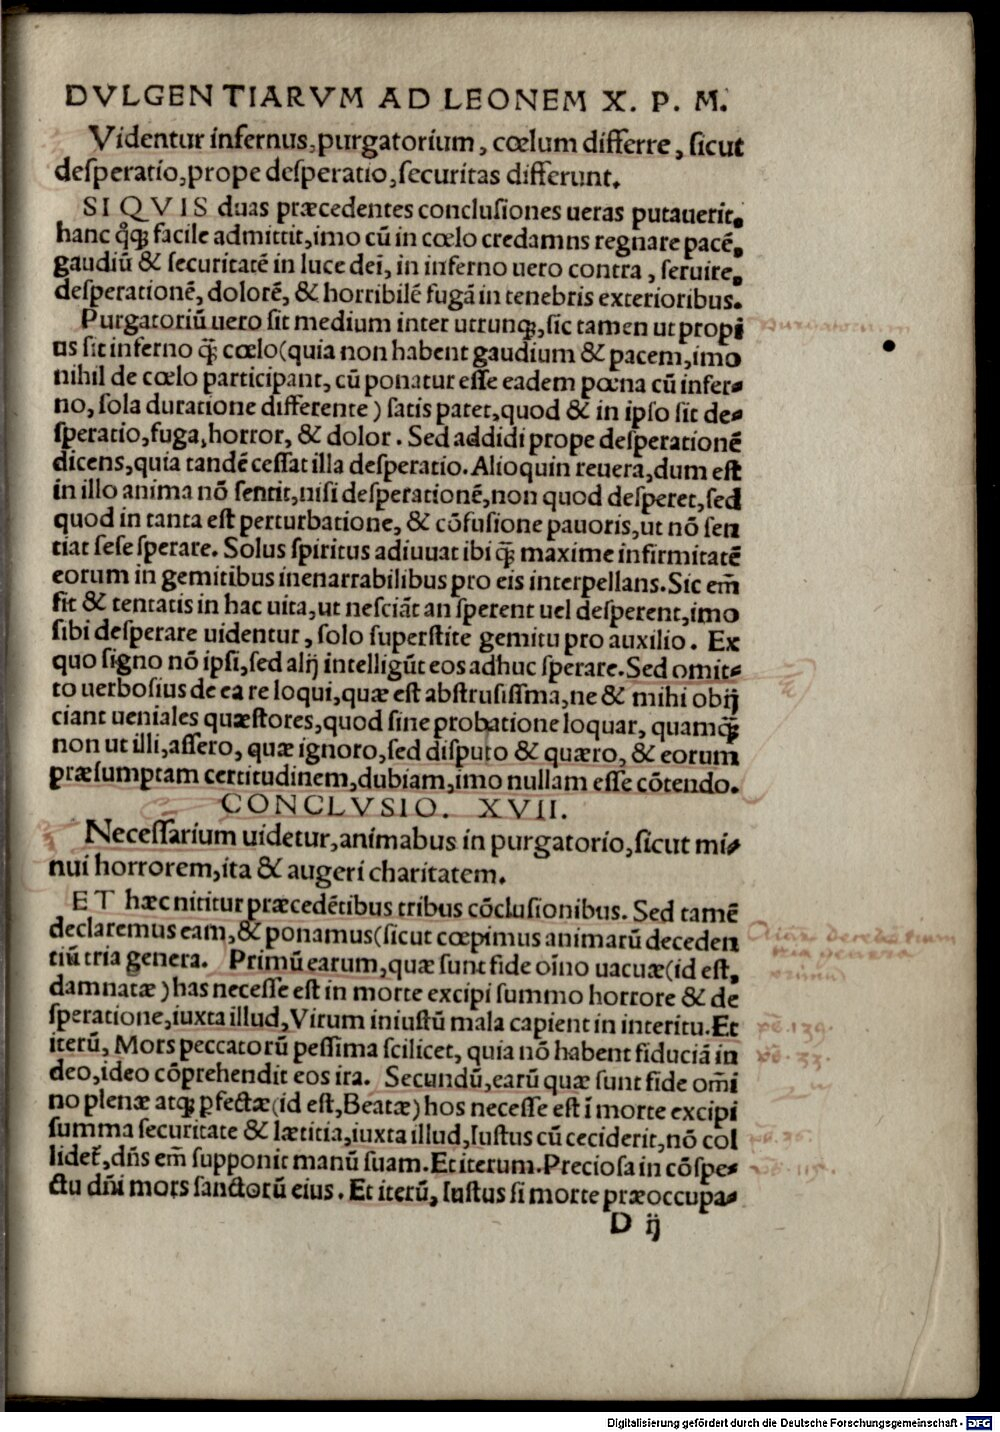 DVLGENTIARVM AD LEONEM X. P. M.
Videntur infernus, purgatorium, cœlum differre, sicut
desperatio, prope desperatio, securitas differunt.
SI QVIS duas præcedentes conclusiones ueras putauerit,
hanc q̊q; facile admittit, imo cū in cœlo credamns regnare pacē,
gaudiū & securitatē in luce dei, in inferno uero contra, seruire,
desperationē, dolorē, & horribilē fugā in tenebris exterioribus.
Purgatoriū uero sit medium inter utrunq;, sic tamen ut propi
us sit inferno q̃ cœlo(quia non habent gaudium & pacem, imo
nihil de cœlo participant, cū ponatur esse eadem pœna cū infer-
no, sola duratione differente) satis patet, quod & in ipso sit de-
speratio, fuga, horror, & dolor. Sed addidi prope desperationē
dicens, quia tandē cessat illa desperatio. Alioquin reuera, dum est
in illo anima nō sentit, nisi desperationē, non quod desperet, sed
quod in tanta est perturbatione, & cōfusione pauoris, ut nō sen
tiat sese sperare. Solus spiritus adiuuat ibi q̃ maxime infirmitatē
eorum in gemitibus inenarrabilibus pro eis interpellans. Sic em̃
fit & tentatis in hac uita, ut nesciāt an sperent uel desperent, imo
sibi desperare uidentur, solo superstite gemitu pro auxilio. Ex
quo signo nō ipsi, sed alij intelligūt eos adhuc sperare. Sed omit-
to uerbosius de ea re loqui, quæ est abstrusissima, ne & mihi obij
ciant ueniales quæstores, quod sine probatione loquar, quamq̃
non ut illi, assero, quæ ignoro, sed disputo & quæro, & eorum
præsumptam certitudinem, dubiam, imo nullam esse cōtendo.
CONCLVSIO. XVII.
Necessarium uidetur, animabus in purgatorio, sicut mi-
nui horrorem, ita & augeri charitatem.
ET hæc nititur præcedētibus tribus cōclusionibus. Sed tamē
declaremus eam, & ponamus(sicut cœpimus animarū deceden
tiū tria genera. Primū earum, quæ sunt fide oīno uacuæ(id est,
damnatæ) has necesse est in morte excipi summo horrore & de
speratione, iuxta illud, Virum iniustū mala capient in interitu. Et
iterū, Mors peccatorū pessima scilicet, quia nō habent fiduciā in
deo, ideo cōprehendit eos ira. Secundū, earū quæ sunt fide om̄i
no plenæ atq; ꝑfectæ(id est, Beatæ) hos necesse est ī morte excipi
summa securitate & lætitia, iuxta illud, Iustus cū ceciderit, nō col
lidet̃, dn̄s em̃ supponit manū suam. Et iterum. Preciosa in cōspe-
ctu dn̄i mors sanctorū eius. Et iterū, Iustus si morte præoccupa-
D ij
purgatorium
tria genera
primū
ps. 139.
ps. 33.
Digitalisierung gefördert durch die Deutsche Forschungsgemeinschaft - DFG